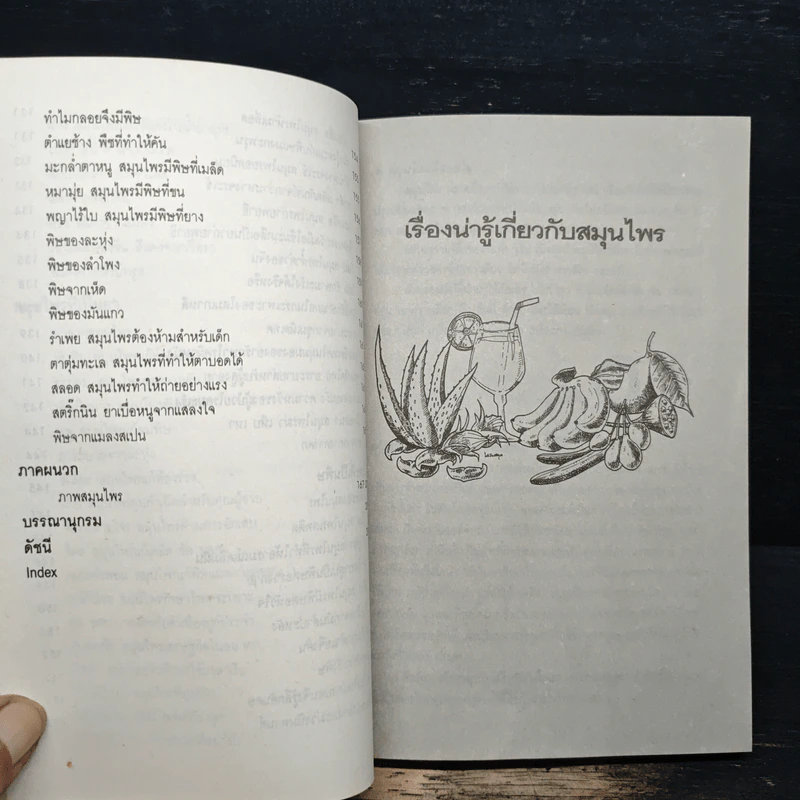 ทำไมกลอยจึงมีพิษ
ตำแยช้าง พืชที่ทำให้คัน
มะกล่ำตาหนู สมุนไพรมีพิษที่เมล็ด
หมามุ่ย สมุนไพรมีพิษที่ขน
พญาไร้ใบ สมุนไพรมีพิษที่ยาง
พิษของละหุ่ง
พิษของลำโพง
พิษจากเห็ด
พิษของมันแกว
รำเพย สมุนไพรต้องห้ามสำหรับเด็ก
ตาตุ่มทะเล สมุนไพรที่ทำให้ตาบอดได้
สลอด สมุนไพรทำให้ถ่ายอย่างแรง
สตริ๊กนิน ยาเบื่อหนูจากแสลงใจ
พิษจากแมลงสเปน
ภาคผนวก
ภาพสมุนไพร 167
บรรณานุกรม
ดัชนี
Index
เรื่องน่ารู้เกี่ยวกับสมุนไพร